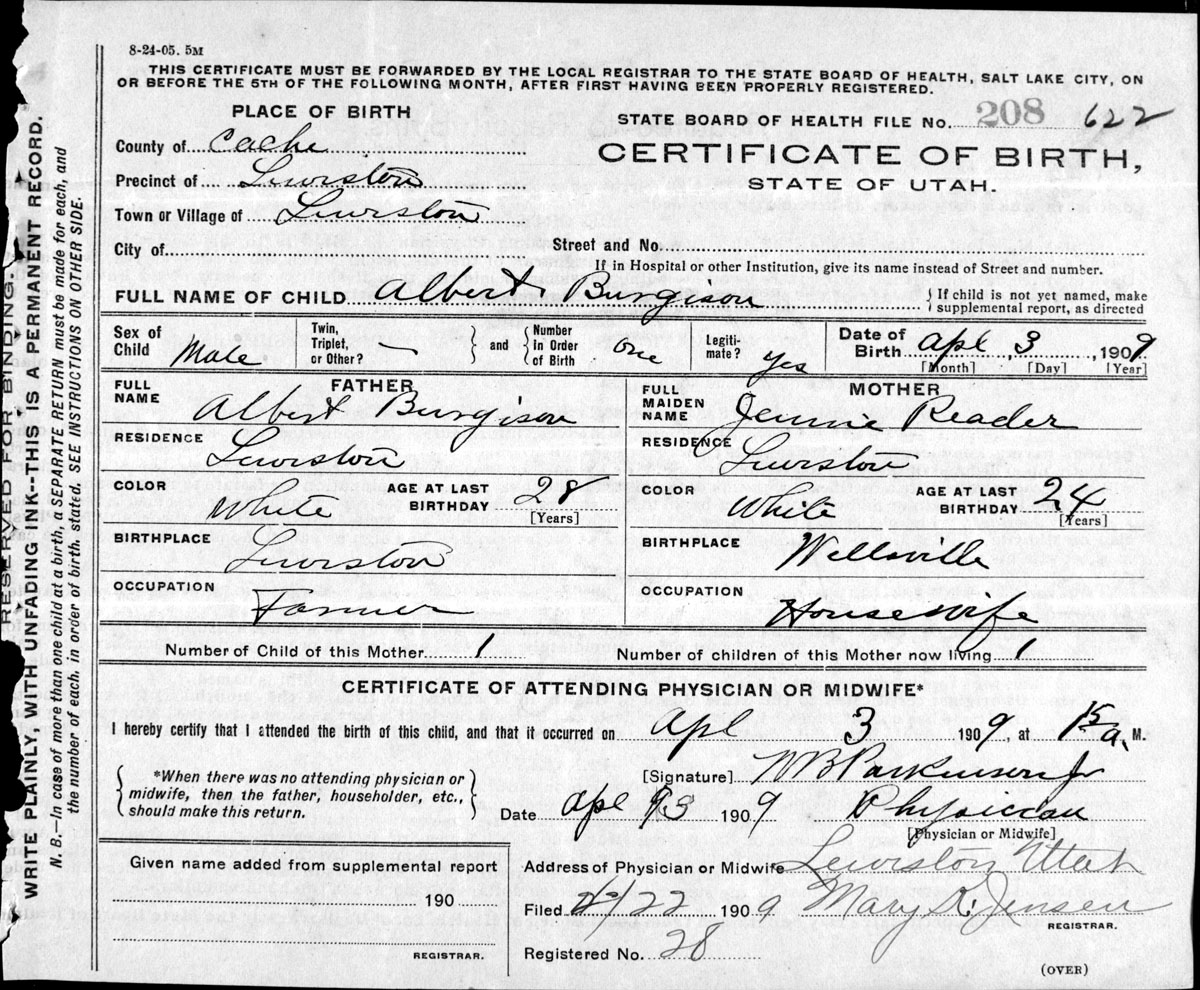 8-24-05. 5M
THIS CERTIFICATE MUST BE FORWARDED BY THE LOCAL REGISTRAR TO THE STATE BOARD OF HEALTH, SALT LAKE CITY, ON
OR BEFORE THE 5TH OF THE FOLLOWING MONTH, AFTER FIRST HAVING BEEN PROPERLY REGISTERED.
PLACE OF BIRTH
STATE BOARD OF HEALTH FILE No. 208 622
County of Cache
CERTIFICATE OF BIRTH,
STATE OF UTAH.
Precinct of Lewiston
Town or Village of Lewiston
City of Street and No.
If in Hospital or other Institution, give its name instead of Street and number.
FULL NAME OF CHILD Albert Burgison
If child is not yet named, make
supplemental report, as directed
Sex of Child Male Twin, Triplet, or Other? — and Number in Order of Birth one Legiti-mate? yes Date of Birth Apl 3, 1909
[Month] [Day] [Year]
FATHER
FULL NAME Albert Burgison
RESIDENCE Lewiston
COLOR White AGE AT LAST BIRTHDAY 28
[Years]
BIRTHPLACE Lewiston
OCCUPATION Farmer
MOTHER
FULL MAIDEN NAME Jennie Reader
RESIDENCE Lewiston
COLOR White AGE AT LAST BIRTHDAY 24
[Years]
BIRTHPLACE Wellsville
OCCUPATION Housewife
Number of Child of this Mother 1 Number of children of this Mother now living 1
CERTIFICATE OF ATTENDING PHYSICIAN OR MIDWIFE*
I hereby certify that I attended the birth of this child, and that it occurred on Apl 3 1909, at a. M.
*When there was no attending physician or
midwife, then the father, householder, etc.,
should make this return.
[Signature] W B Parkinson Jr
Date Apl 3 1909 Physician
[Physician or Midwife]
Given name added from supplemental report
190
REGISTRAR.
Address of Physician or Midwife Lewiston Utah
Filed 22 1909 Mary R. Jensen
REGISTRAR.
Registered No. 28
(OVER)
RESERVED FOR BINDING.
WRITE PLAINLY, WITH UNFADING INK--THIS IS A PERMANENT RECORD.
N. B.—In case of more than one child at a birth, a SEPARATE RETURN must be made for each, and
the number of each, in order of birth, stated. SEE INSTRUCTIONS ON OTHER SIDE.